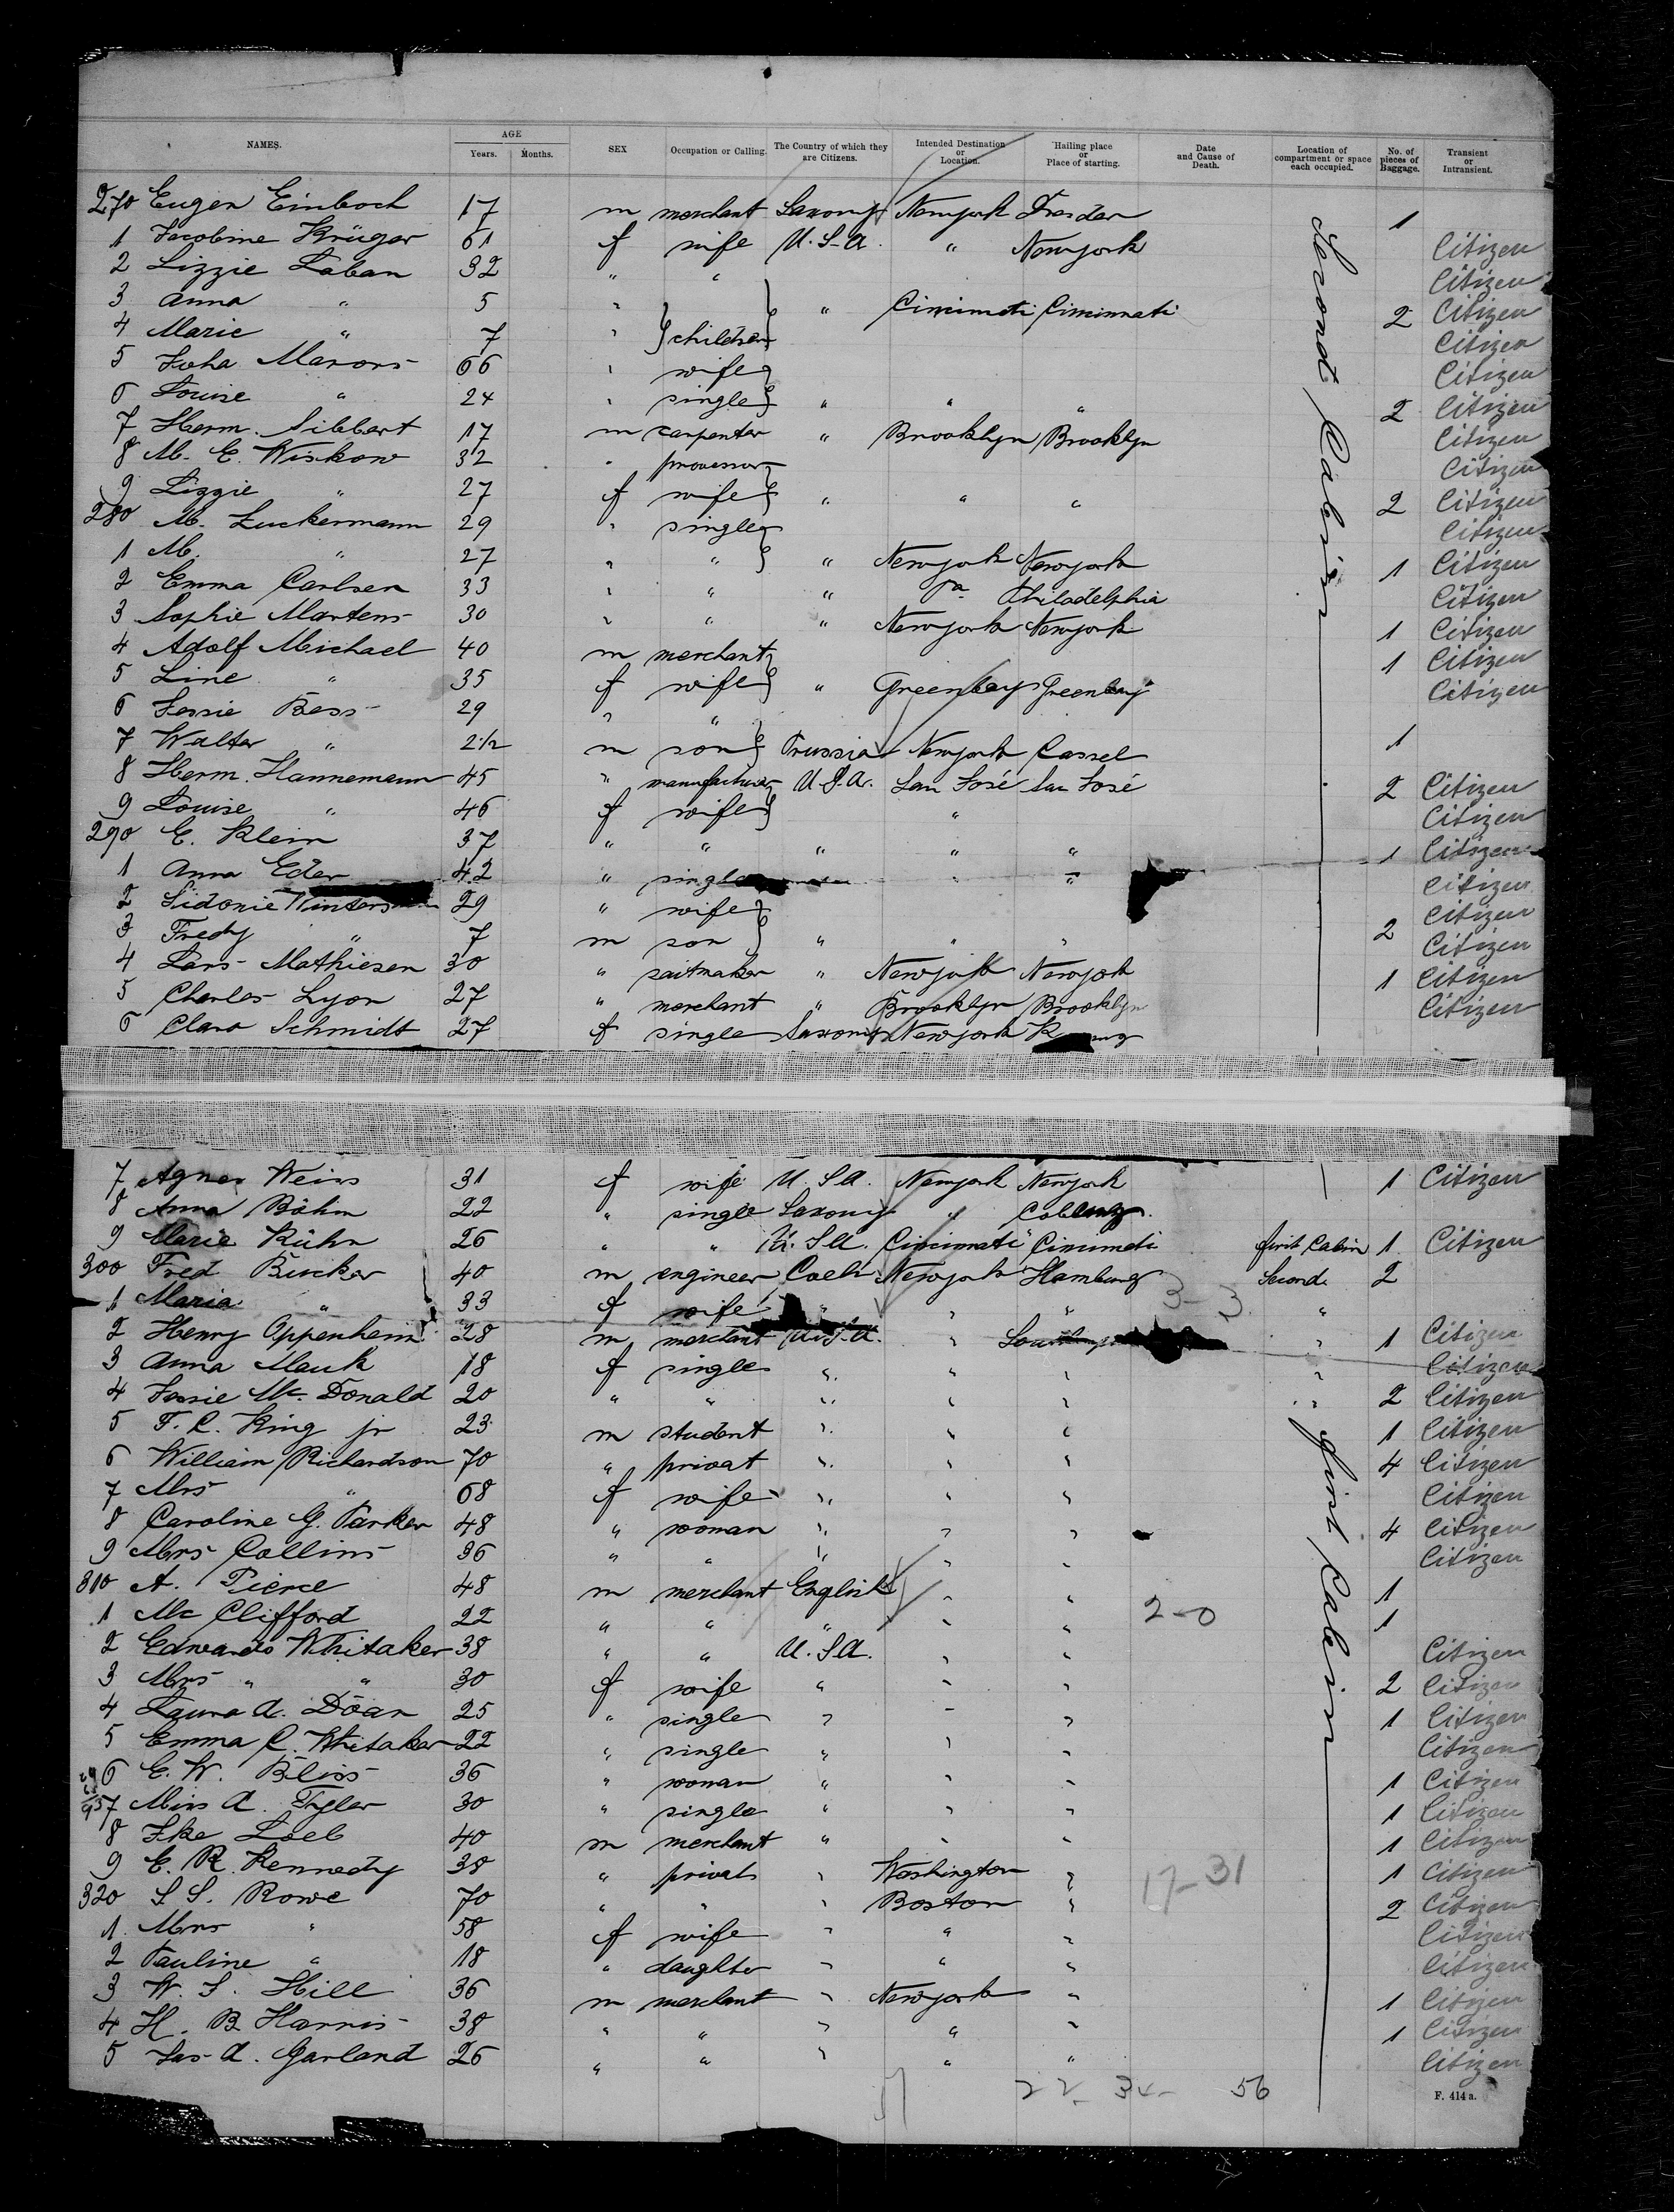 NAMES. AGE Years. Months. SEX Occupation or Calling. The Country of which they are Citizens. Intended Destination or Location. Hailing place or Place of starting. Date and Cause of Death. Location of compartment or space each occupied. No. of pieces of Baggage. Transient or Intransient.
270 Eugen Einboch 17 m merchant Saxony Newyork Dresden 1
1 Jacobine Krüger 61 f wife U.S.A. " Newyork Citizen
2 Lizzie Laban 32 " " Citizen
3 Anna " 5 " " Cincinnati Cincinnati 2 Citizen
4 Marie " 7 " children Citizen
5 Marors 66 " wife Citizen
6 Louise " 24 " single " " " 2 Citizen
7 Herm. Sibbert 17 m carpenter " Brooklyn Brooklyn Citizen
8 M. E. Wiskow 32 " Citizen
9 Lizzie " 27 f wife " " " 2 Citizen
280 M. Luckermann 29 " single Citizen
1 M. " 27 " " " Newyork Newyork 1 Citizen
2 Emma Carlsen 33 " " " Pa Philadelphia Citizen
3 Sophie Martens 30 " " " Newyork Newyork 1 Citizen
4 Adolf Michael 40 m merchant 1 Citizen
5 Line " 35 f wife " Greenbay Greenbay Citizen
6 Jessie Bess 29 " "
7 Walter " 2 1/2 m son Prussia Newyork Cassel 1
8 Herm. Hannemann 45 " manufacturer U.S.A. San José San José 2 Citizen
9 Louise " 46 f wife " Citizen
290 E. Klein 37 " " " " " 1 Citizen
1 Anna Eder 42 " single " " Citizen
2 Sidonie 29 " wife Citizen
3 Fredy " 7 m son " " " 2 Citizen
4 Lars Mathiesen 30 " sailmaker " Newyork Newyork 1 Citizen
5 Charles Lyon 27 " merchant " Brooklyn Brooklyn Citizen
6 Clara Schmidt 27 f single Saxony Newyork
Second Cabin
7 Agnes Weiss 31 f wife U.S.A. Newyork Newyork 1 Citizen
8 Anna Böhm 22 " single Saxony "
9 Marie Kühn 26 " " U.S.A. Cincinnati Cincinnati first Cabin 1 Citizen
300 Fred Bucker 40 m engineer Newyork Hamburg Second 2
1 Maria " 33 f wife " " " 3-3 "
2 Henry Oppenheim 28 m merchant U.S.A. " " 1 Citizen
3 Anna Mauk 18 f single " " " " Citizen
4 Jessie Mc Donald 20 " " " " " " 2 Citizen
5 F. C. King jr 23 m student " " " 1 Citizen
6 William Richardson 70 " privat " " " 4 Citizen
7 Mrs " 68 f wife " " " Citizen
8 Caroline G. Parker 48 " woman " " " 4 Citizen
9 Mrs Collins 36 " " " " " Citizen
310 A. Pierce 48 m merchant English " " 1
1 Mc Clifford 22 " " " " " 2-0 1
2 Edwards Whitaker 38 " " U.S.A. " " Citizen
3 Mrs " " 30 f wife " " " 2 Citizen
4 Laura A. Doan 25 " single " " " 1 Citizen
5 Emma C. Whitaker 22 " single " " " Citizen
6 E. W. Bliss 36 " woman " " " 1 Citizen
7 Miss A. Tyler 30 " single " " " 1 Citizen
8 Ike Loeb 40 m merchant " " " 1 Citizen
9 E. R. Kennedy 38 " privat " Washington " 17-31 1 Citizen
320 S S. Rowe 70 " " " Boston " 2 Citizen
1 Mrs " 58 f wife " " " Citizen
2 Pauline " 18 " daughter " " " Citizen
3 W. S. Hill 36 m merchant " Newyork " 1 Citizen
4 H. B Harris 38 " " " " " 1 Citizen
5 Jas A. Garland 26 " " " " " Citizen
first Cabin
22 34 56
F. 414 a.